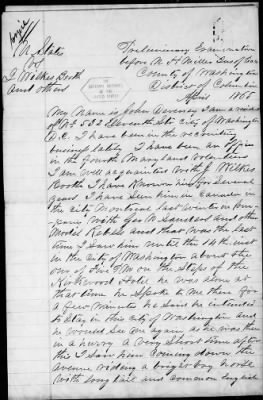 Copy
U States
vs
J Wilkes Booth
and others
Preliminary Examination
before N H Miller Jus of Peace
County of Washington
District of Columbia
April 1865
My Name is John Deveney I am a resident
of No 532 Eleventh Str City of Washington
D.C. I have been in the recruiting
business lately I have been an
in the Fourth Maryland Volunteers
I am well acquainted with J Wilkes
Booth I have known him for several
years I have seen him in Canada in
the city Montreal last winter in
with Geo N Sanders and other
Rebels and that was the last
time I saw him until the 14th inst
in the City of Washington about the
hour of Five P M on the steps of the
Kirkwood Hotel he was alone at
that time he spoke to me then for
a few minutes he said he intended
to stay in this City of Washington and
he would see me again as he was then
in a hurry a very short time after
this I saw him coming down the
avenue riding a bright bay horse
with long tail and common English